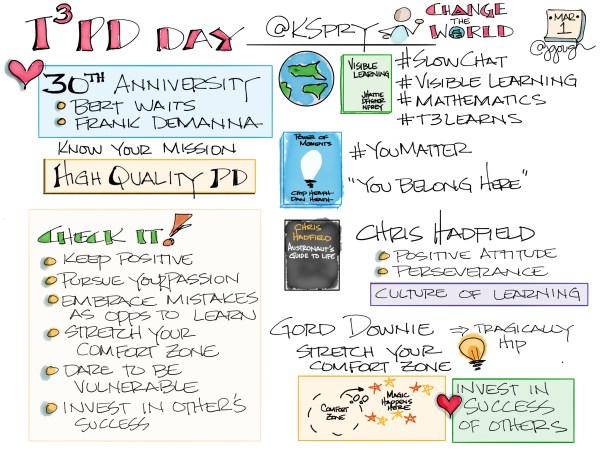 T³ PD DAY @KSPRY
CHANGE
THE
WORLD
MAR
1
@jgough
30TH ANNIVERSITY
BERT WAITS
FRANK DEMANNA
KNOW YOUR MISSION
HIGH QUALITY PD
CHECK IT!
KEEP POSITIVE
PURSUE YOUR PASSION
EMBRACE MISTAKES
AS OPPS TO LEARN
STRETCH YOUR
COMFORT ZONE
DARE TO BE
VULNERABLE
INVEST IN OTHER'S
SUCCESS
VISIBLE
LEARNING
HATTIE
FISHER
FREY
#SLOWCHAT
#VISIBLE LEARNING
#MATHEMATICS
#T3LEARNS
POWER OF
MOMENTS
CHIP HEATH
DAN HEATH
#YOUMATTER
"YOU BELONG HERE"
CHRIS
HADFIELD
AUSTRONAUT'S
GUIDE TO LIFE
CHRIS HADFIELD
POSITIVE ATTITUDE
PERSEVERANCE
CULTURE OF LEARNING
GORD DOWNIE ⇒ TRAGICALLY
HIP
STRETCH YOUR
COMFORT ZONE
COMFORT
ZONE
MAGIC
HAPPENS
HERE
INVEST IN
SUCCESS
OF OTHERS